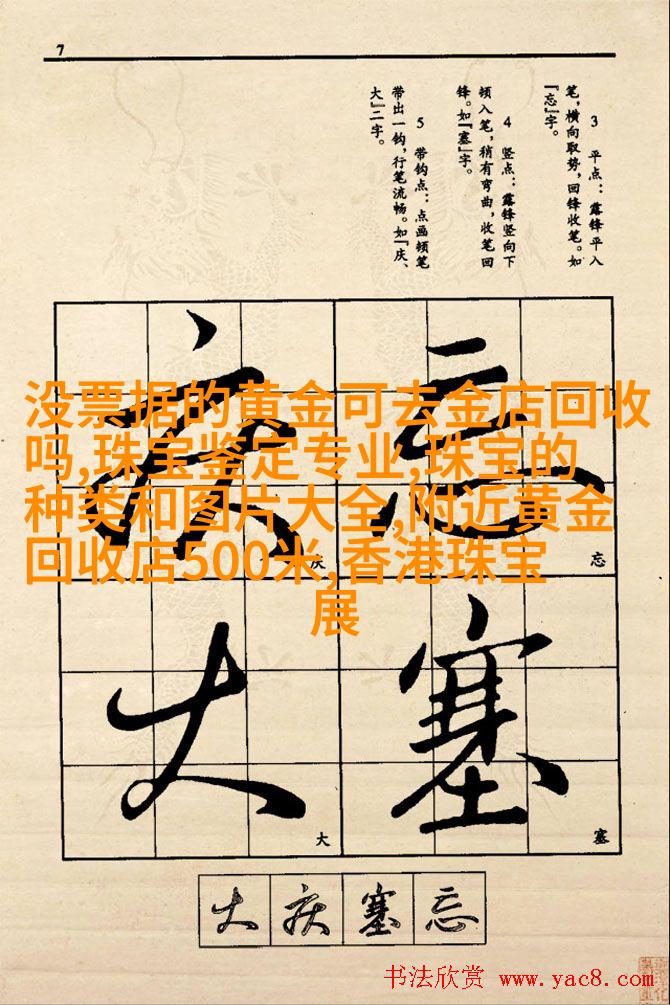 7
3 平点：露锋平入
笔，横向取势，回锋收笔。如
『忘』字。
4 竖点：露锋竖向下
顿入笔，稍有弯曲，收笔回
锋。如『塞』字。
5 带钩点：点画顿笔
带出一钩，行笔流畅。如『庆、
大』二字。
没票据的黄金可去金店回收
吗,珠宝鉴定专业,珠宝的
种类和图片大全,附近黄金
回收店500米,香港珠宝
展
庆 忘
庆 忘
大 塞
大 塞
大 庆 塞 忘
书法欣赏 www.yac8.com